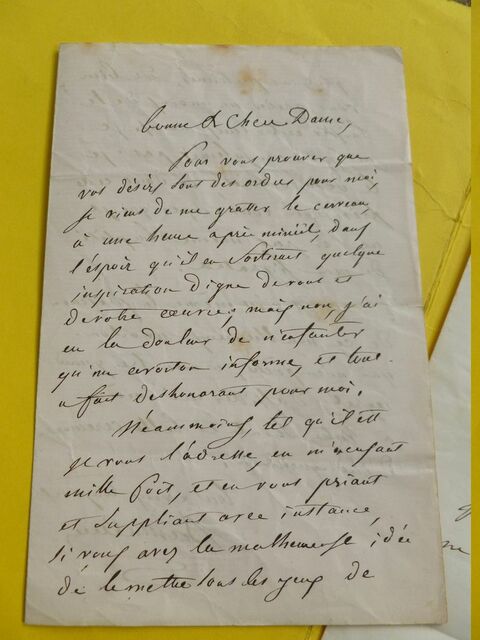 bonne & chere Dame,
Pour vous prouver que
vos désirs sont des ordres pour moi,
je viens de me gratter le cerveau,
à une heure après minuit, dans
l'éspoir qu'il en sortirait quelque
inspiration digne de vous et
de votre oeuvre; mais non, j'ai
eu la douleur de n'enfanter
qu'un avorton informe, et tout-
a fait deshonorant pour moi.
Néanmoins, tel qu'il est
je vous l'adresse, en m'excusant
mille fois, et en vous priant
et suppliant avec instance,
si vous avez la malheureuse idée
de le mettre sous les yeux de